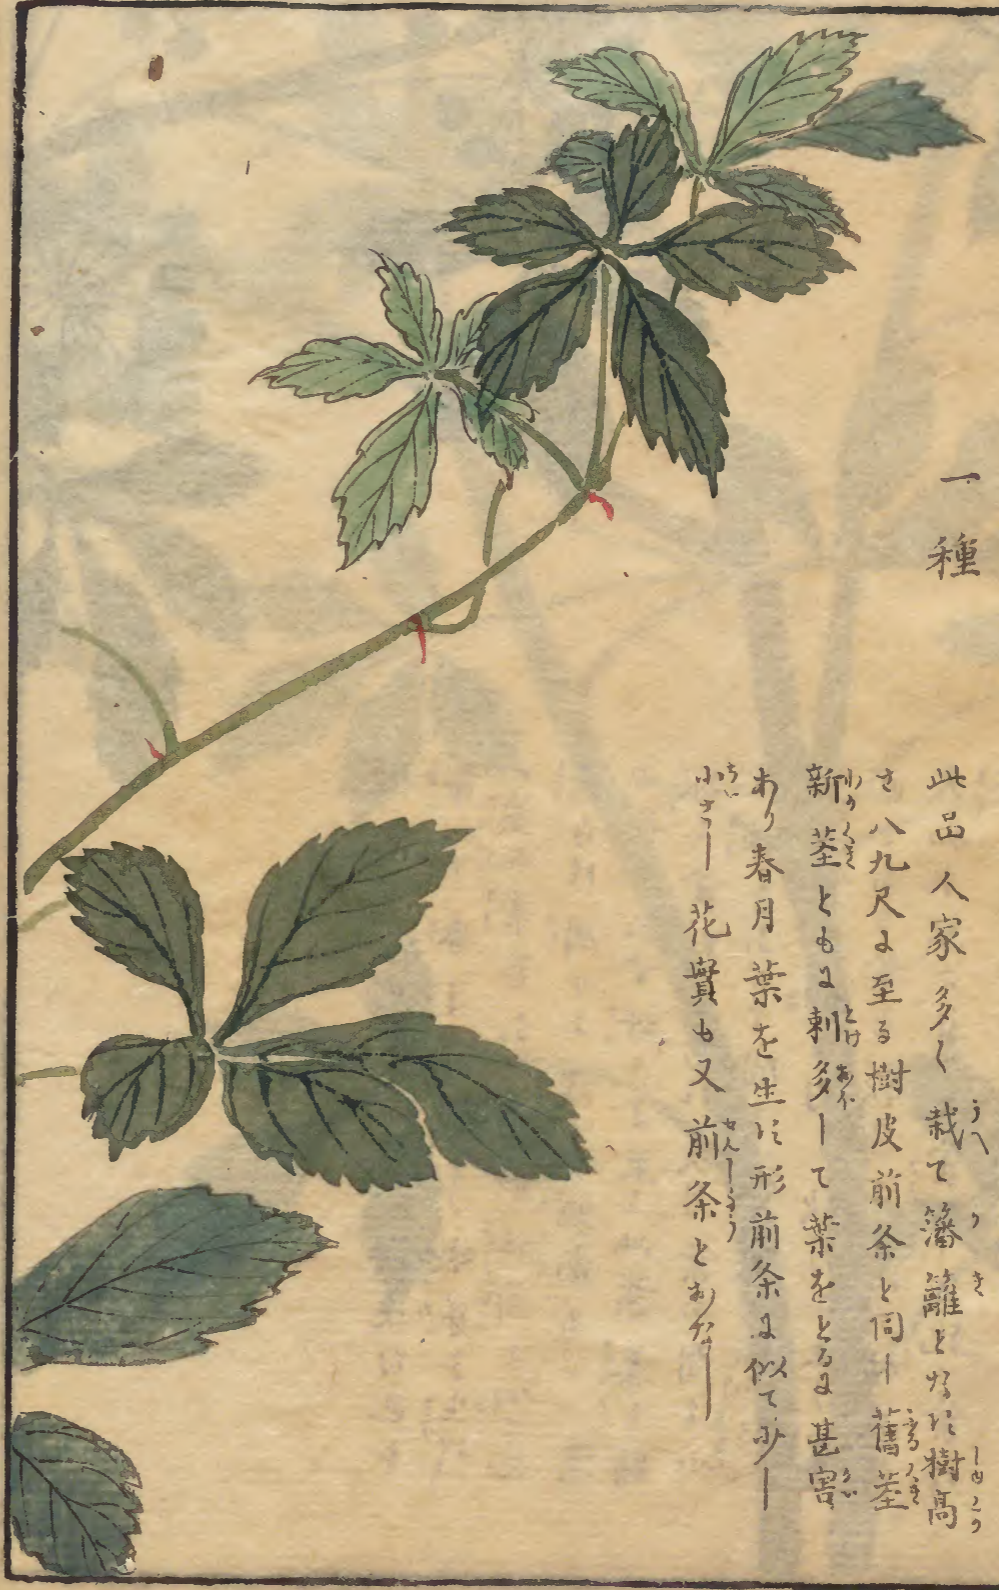 一種
此品人家多く栽て籓籬となす樹高
さ八九尺に至る樹皮前条と同し舊茎
新茎ともに刺多して葉をとるに甚害
あり春月葉を生す形前条に似て少し
小さし花實も又前条とおなし